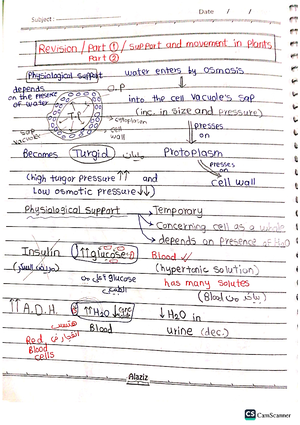 Date / /
Subject :
Revision / Part ① / Support and movement in plants
Part ②
Physiological support
water enters by osmosis
depends on the presence of water
O.P
into the cell vacuole's sap
(inc. in size and pressure)
T.P
cytoplasm
cell wall
sap vacuole
presses on
Becomes Turgid يابان Protoplasm
presses on
(high turgor pressure ↑↑ and
Low osmotic pressure ↓↓)
cell wall
Physiological Support → Temporary
→ Concerning cell as a whole
→ depends on presence of H2O
Insulin ↑↑ glucose Blood
(hypertonic solution)
glucose
has many solutes
(Blood من
↑↑ A.D.H. ↑↑ H2O ↓ conc
Blood
↓ H2O in
urine (dec.)
Red Blood cells
Alaziz
CS CamScanner